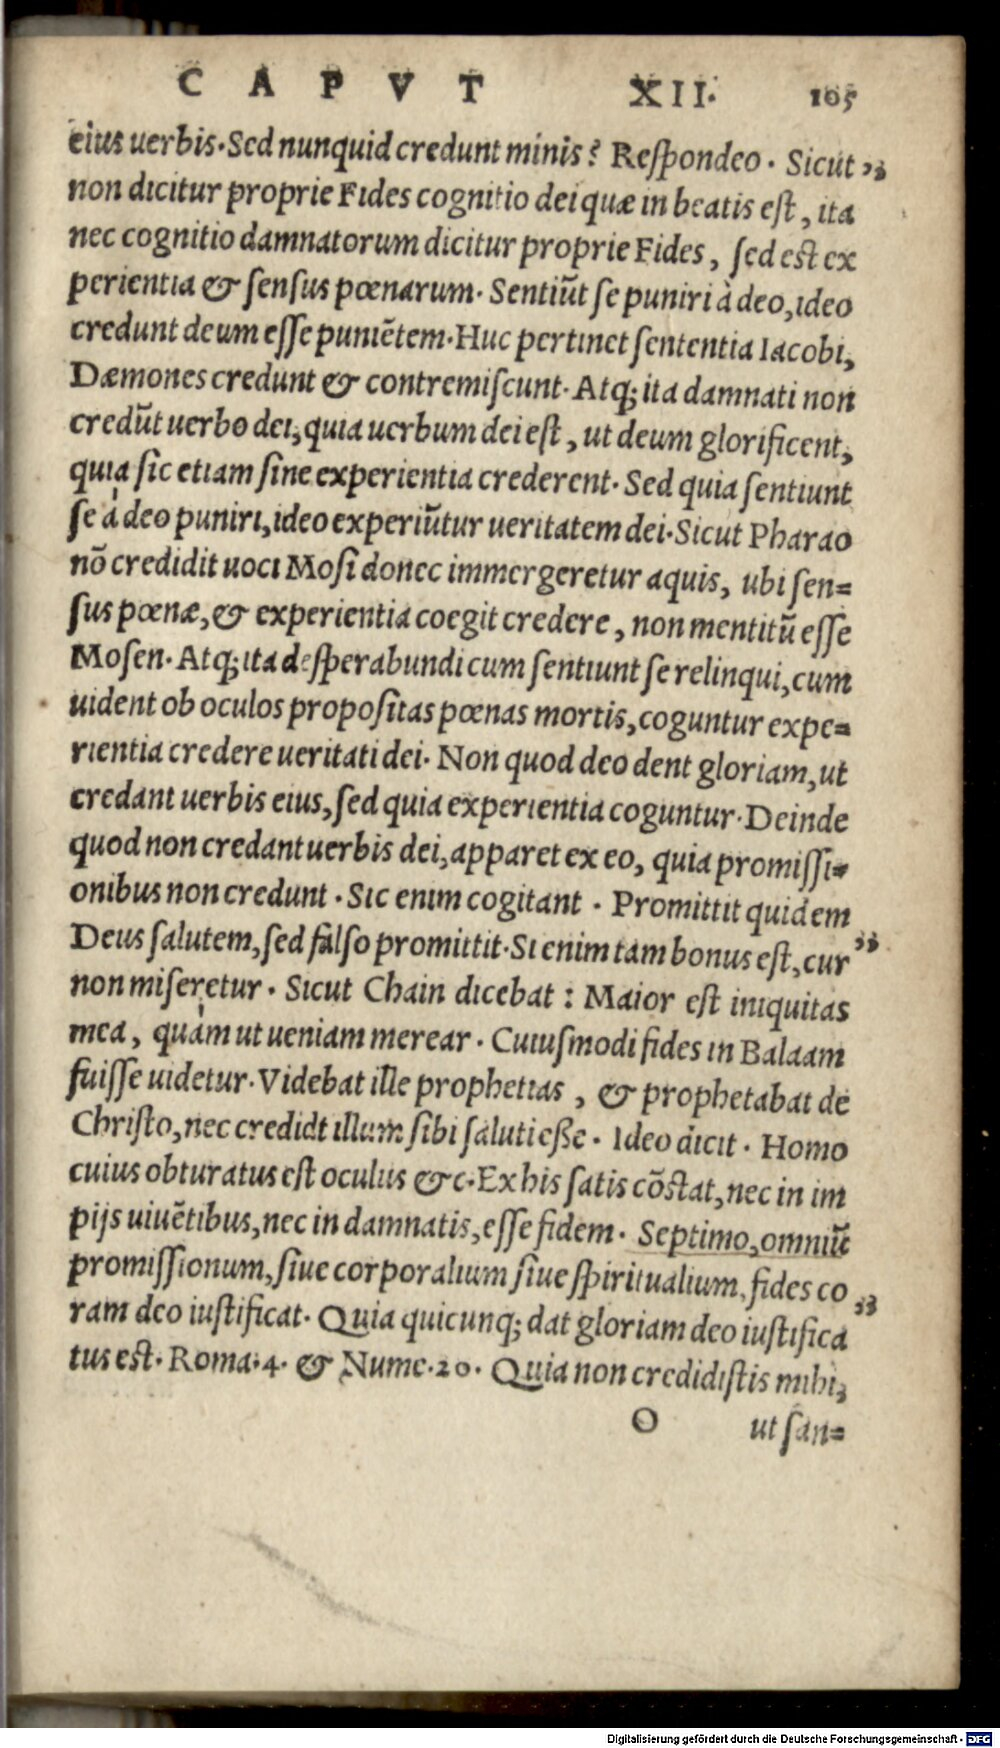 CAPVT XII. 105
eius uerbis. Sed nunquid credunt minis? Respondeo. Sicut „
non dicitur proprie Fides cognitio dei quæ in beatis est, ita
nec cognitio damnatorum dicitur proprie Fides, sed est ex
perientia & sensus pœnarum. Sentiūt se puniri à deo, ideo
credunt deum esse puniētem. Huc pertinet sententia Iacobi,
Dæmones credunt & contremiscunt. Atq; ita damnati non
credūt uerbo dei, quia uerbum dei est, ut deum glorificent,
quia sic etiam sine experientia crederent. Sed quia sentiunt
se à deo puniri, ideo experiūtur ueritatem dei. Sicut Pharao
nō credidit uoci Mosi donec immergeretur aquis, ubi sen=
sus pœnæ, & experientia coegit credere, non mentitū esse
Mosen. Atq; ita desperabundi cum sentiunt se relinqui, cum
uident ob oculos propositas pœnas mortis, coguntur expe=
rientia credere ueritati dei. Non quod deo dent gloriam, ut
credant uerbis eius, sed quia experientia coguntur. Deinde
quod non credant uerbis dei, apparet ex eo, quia promissi=
onibus non credunt. Sic enim cogitant. Promittit quidem
Deus salutem, sed falso promittit. Si enim tam bonus est, cur „
non miseretur. Sicut Chain dicebat: Maior est iniquitas
mea, quàm ut ueniam merear. Cuiusmodi fides in Balaam
fuisse uidetur. Videbat ille prophetias, & prophetabat de
Christo, nec credidt illum sibi saluti eße. Ideo dicit. Homo
cuius obturatus est oculus &c. Ex his satis cōstat, nec in im
pijs uiuētibus, nec in damnatis, esse fidem. Septimo, omniū
promissionum, siue corporalium siue spiritualium, fides co „
ram deo iustificat. Quia quicunq; dat gloriam deo iustifica
tus est. Roma. 4. & Nume. 20. Quia non credidistis mihi,
O ut san=
Digitalisierung gefördert durch die Deutsche Forschungsgemeinschaft - DFG